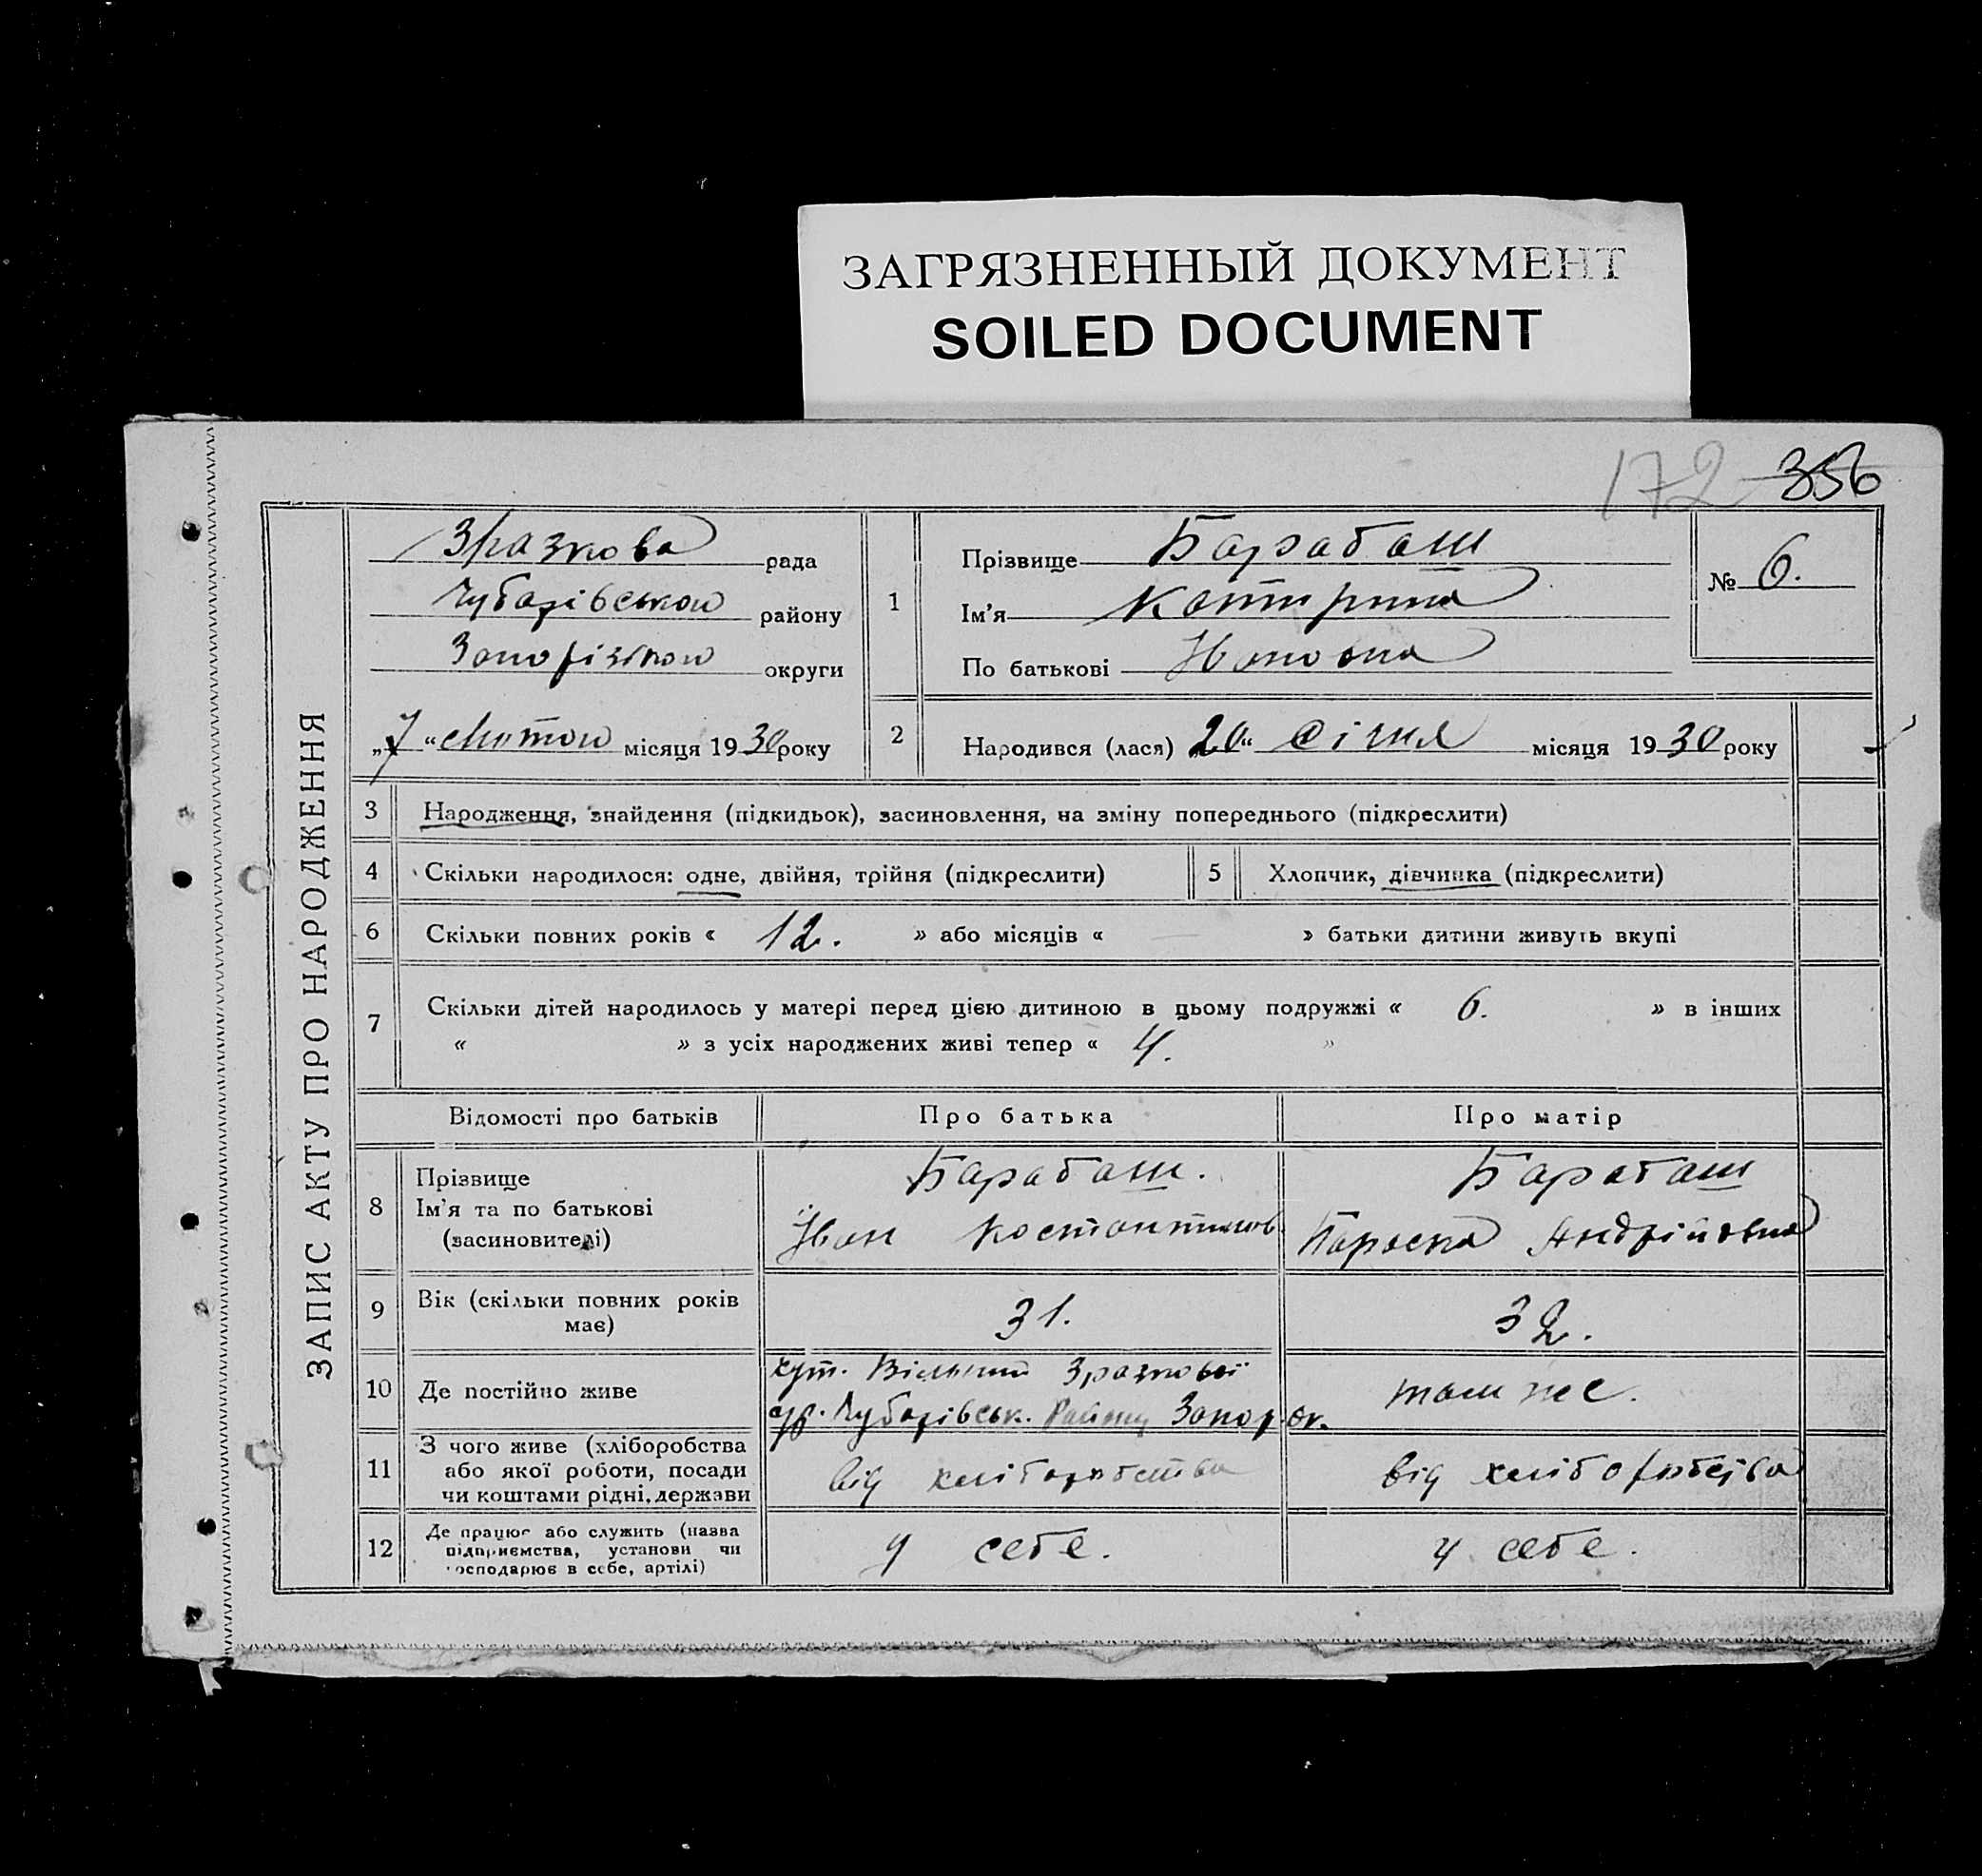 ЗАГРЯЗНЕННЫЙ ДОКУМЕНТ
SOILED DOCUMENT
172 356
ЗАПИС АКТУ ПРО НАРОДЖЕННЯ
Зразкова рада
Чубарівського району
Запорізького округи
„7“ лютого місяця 1930 року
1
Прізвище Барабаш
Ім'я Катирина
По батькові Ивановна
№ 6.
2 Народився (лася) „20“ Січня місяця 1930 року
3 Народження, знайдення (підкидьок), засиновлення, на зміну попереднього (підкреслити)
4 Скільки народилося: одне, двійня, трійня (підкреслити)
5 Хлопчик, дівчинка (підкреслити)
6 Скільки повних років « 12. » або місяців « — » батьки дитини живуть вкупі
7 Скільки дітей народилось у матері перед цією дитиною в цьому подружжі « 6. » в інших
« » з усіх народжених живі тепер « 4. »
Відомості про батьків Про батька Про матір
8 Прізвище
Ім'я та по батькові
(засиновителі)
Барабаш.
Иван Костантинов.
Барабаш
Параска Андрійовна
9 Вік (скільки повних років
має)
31.
32.
10 Де постійно живе
хут. Вільний Зразкової
с/р. Чубарівськ. Району Запор. ок.
там же.
11 З чого живе (хліборобства
або якої роботи, посади
чи коштами рідні, держави
від хліборобства
від хліборобства
12 Де працює або служить (назва
підприємства, установи чи
господарює в себе, артілі)
у себе.
у себе.